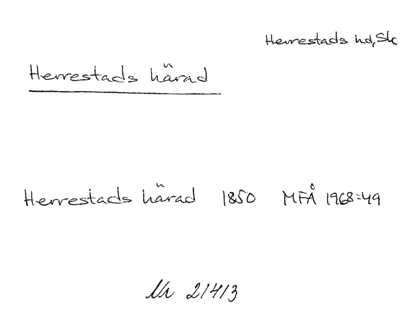 Herrestads hd, Sk
Herrestads härad
Herrestads härad 1850 MFÅ 1968:49
Nr 21413